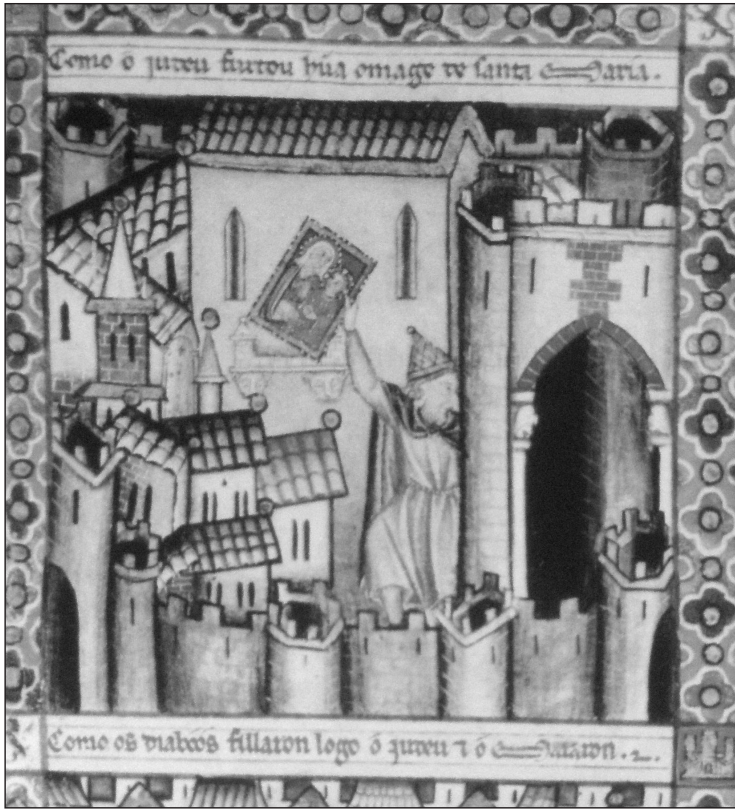 Como o iudeu furtou hũa omage de santa Maria.
Como os diabõs fillaron logo o iudeu ⁊ o mataron.